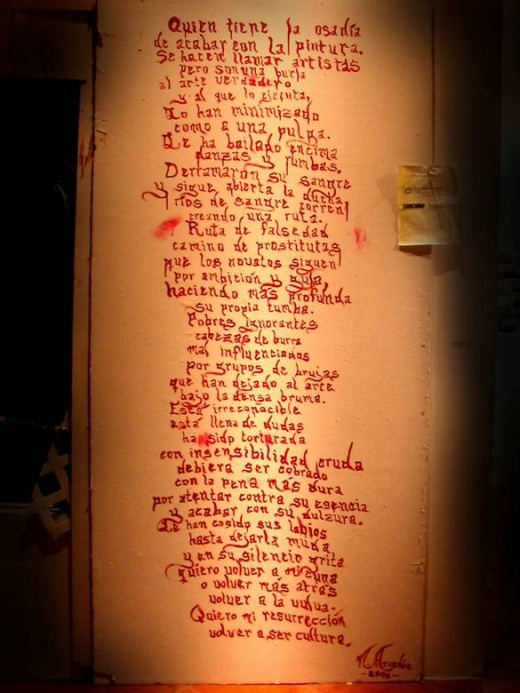 Quien tiene la osadía
de acabar con la pintura.
Se hacen llamar artistas
pero son una burla
al arte verdadero
y al que lo ejecuta,
Lo han minimizado
como a una pulga.
Le ha bailado encima
danzas y rumbas.
Derramaron su sangre
y sigue abierta la ducha
ríos de sangre torren
creando una ruta.
Ruta de falsedad
camino de prostitutas
que los novatos siguen
por ambición y gula,
haciendo más profunda
su propia tumba.
Pobres ignorantes
cabezas de burro
mal influenciados
por grupos de brujas
que han dejado al arte
bajo la densa bruma.
Está irreconocible
está llena de dudas
ha sido torturada
con insensibilidad cruda
debiera ser cobrado
con la pena más dura
por atentar contra su esencia
y acabar con su dulzura.
Le han cosido sus labios
hasta dejarla muda
y en su silencio grita
Quiero volver a mi cuna
o volver más atrás
volver a la vulva.
Quiero mi resurrección
volver a ser cultura.